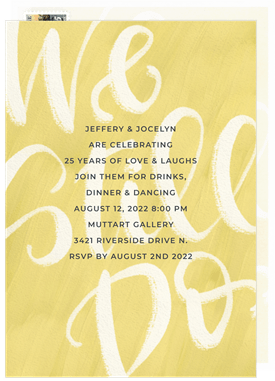 We
Still
Do
JEFFERY & JOCELYN
ARE CELEBRATING
25 YEARS OF LOVE & LAUGHS
JOIN THEM FOR DRINKS,
DINNER & DANCING
AUGUST 12, 2022 8:00 PM
MUTTART GALLERY
3421 RIVERSIDE DRIVE N.
RSVP BY AUGUST 2ND 2022